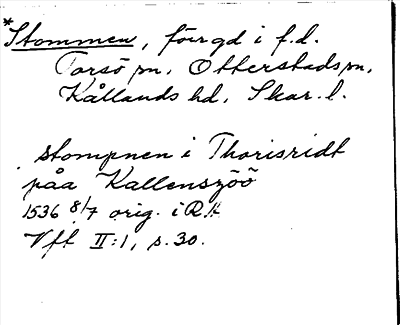 *Stommen, förr gd i f.d.
Torsö sn, Otterstads sn,
Kållands hd, Skar. l.
stompnen i Thorisridt
påa Kallenszöö
1536 8/7 orig. i RA
Vft II:1, s. 30.